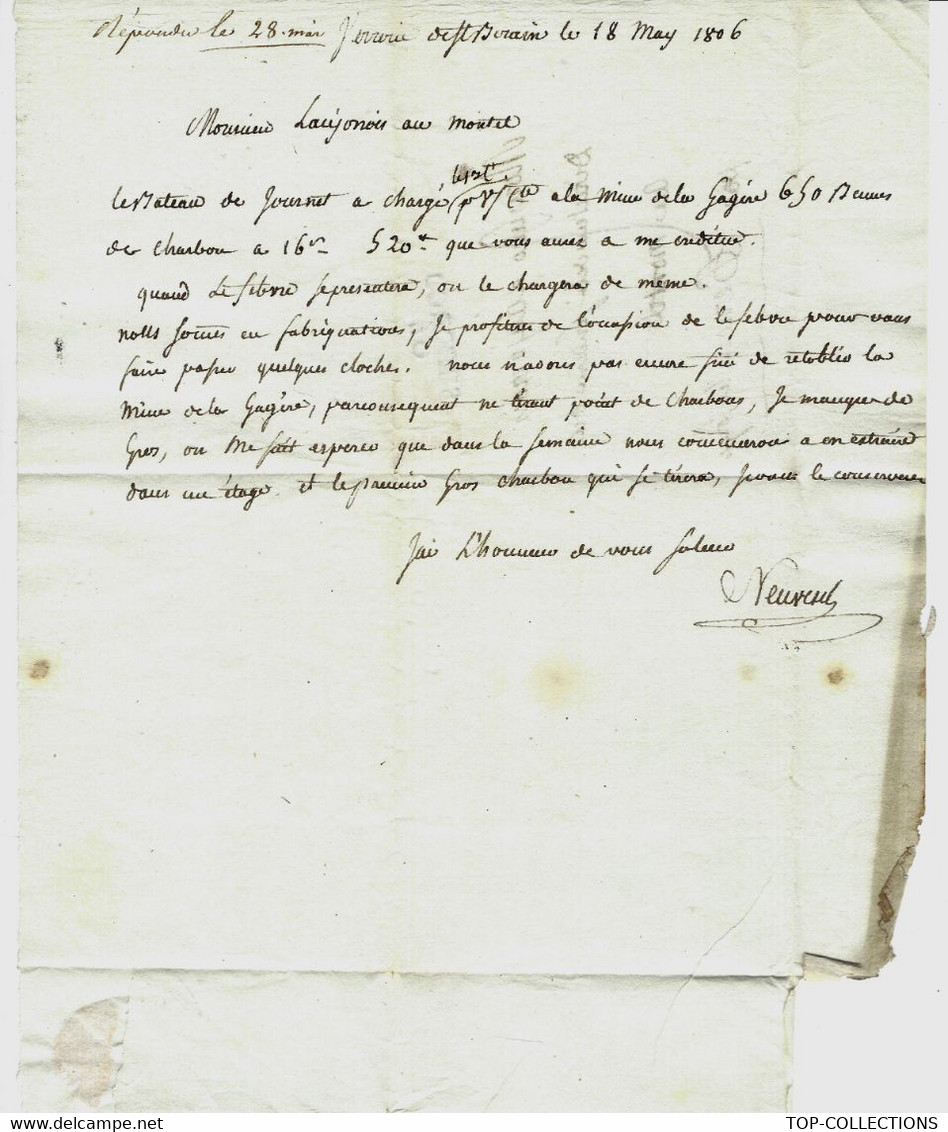 Répondu le 28. mai Verrerie de St Berain le 18 May 1806
Monsieur au montel
le 12 Ct
le Bateau de Journet a chargé pr V/ Cte a la Mine de la Gagére 650 Bennes
de charbon a 16s 520# que vous aurez a me créditer.
quand Lefebvre se presentera, on le chargera de même.
nous somes en fabriquations, je profiterai de l'ocassion de lefebvre pour vous
faire passer quelques cloches. nous n'avons pas encore fini de retablir la
Mine de la Gagére, parconsequent ne tirant point de Charbons, Je manque de
Gros, on me fait esperer que dans la semaine nous comencerons a en extraire
dans un étage. et le premier Gros charbon qui se tirera, je vous le conserverai
Jai L'honneur de vous saluer
TOP-COLLECTIONS